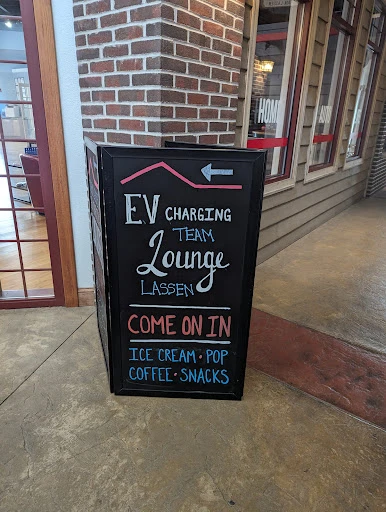 EV CHARGING
TEAM
Lounge
LASSEN
COME ON IN
ICE CREAM • POP
COFFEE • SNACKS
HOME